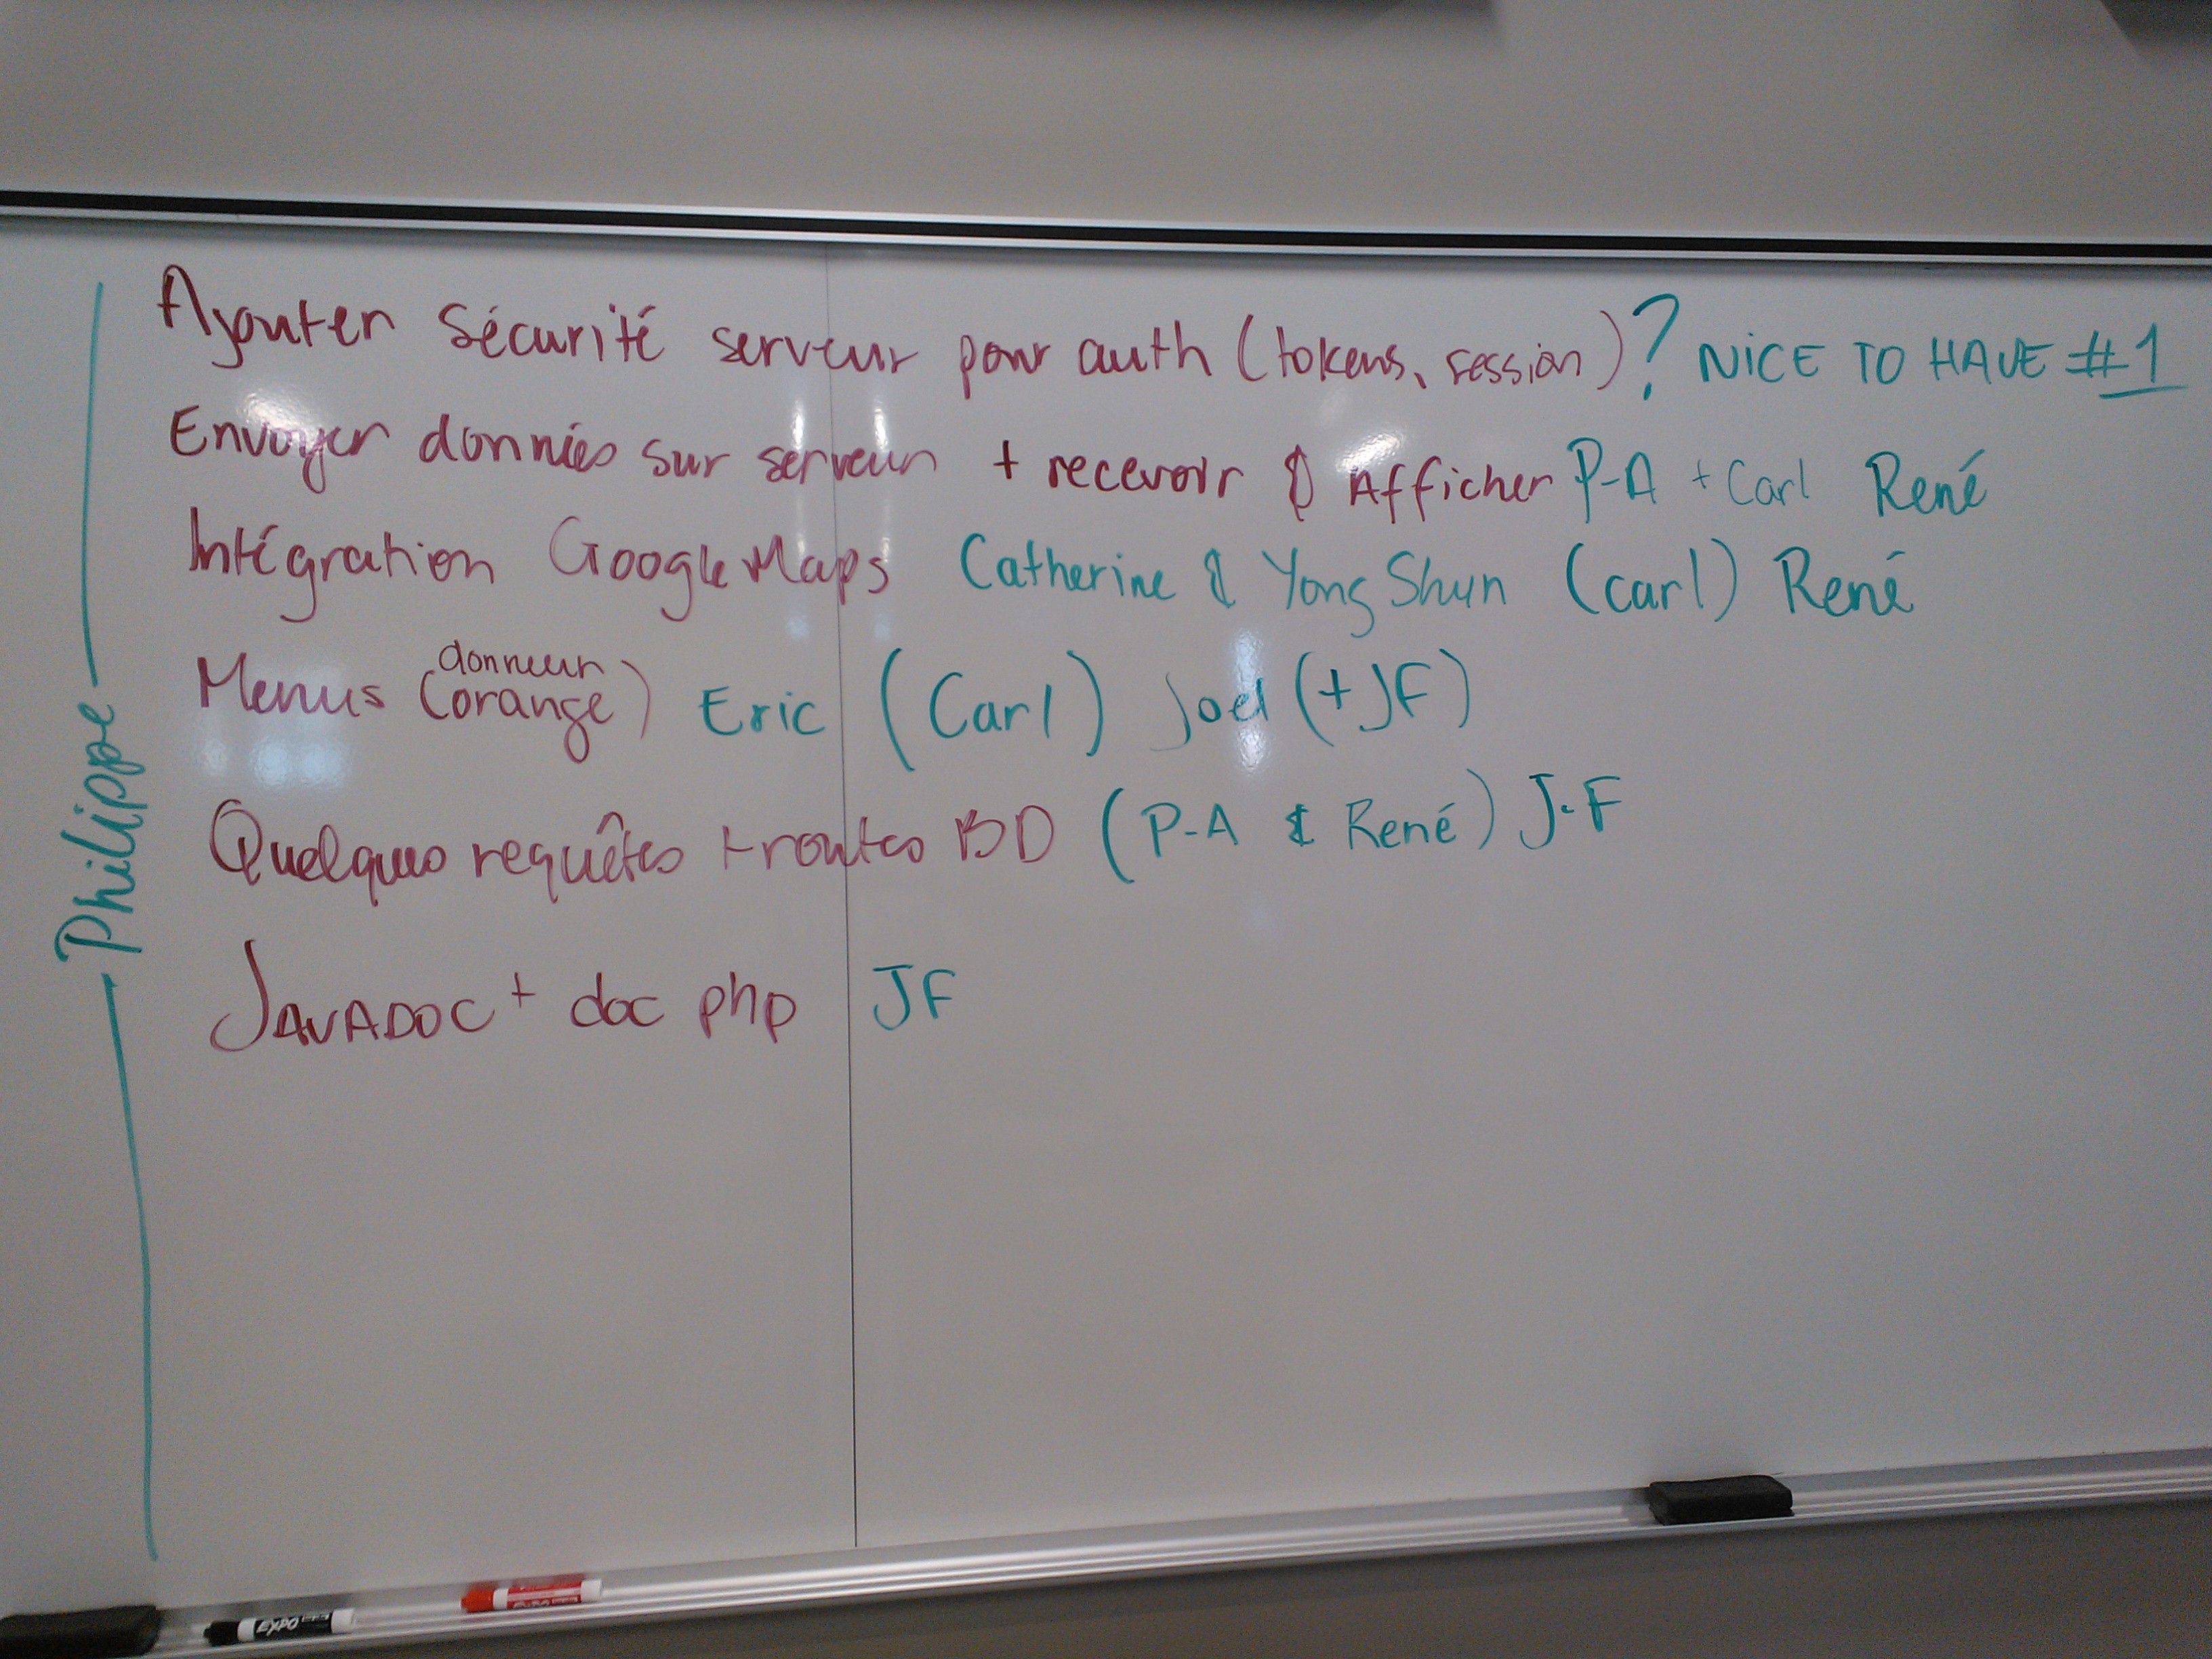 Ajouter Sécurité serveur pour auth (tokens, session)? NICE TO HAVE #1
Envoyer données sur serveur + recevoir & Afficher P-A + Carl René
Intégration Google Maps Catherine & Yong Shun (carl) René
donneur
Menus (orange) Eric (Carl) Joel (+JF)
Quelques requêtes + routes BD (P-A & René) J-F
JAVADOC + doc php JF
Philippe
EXPO